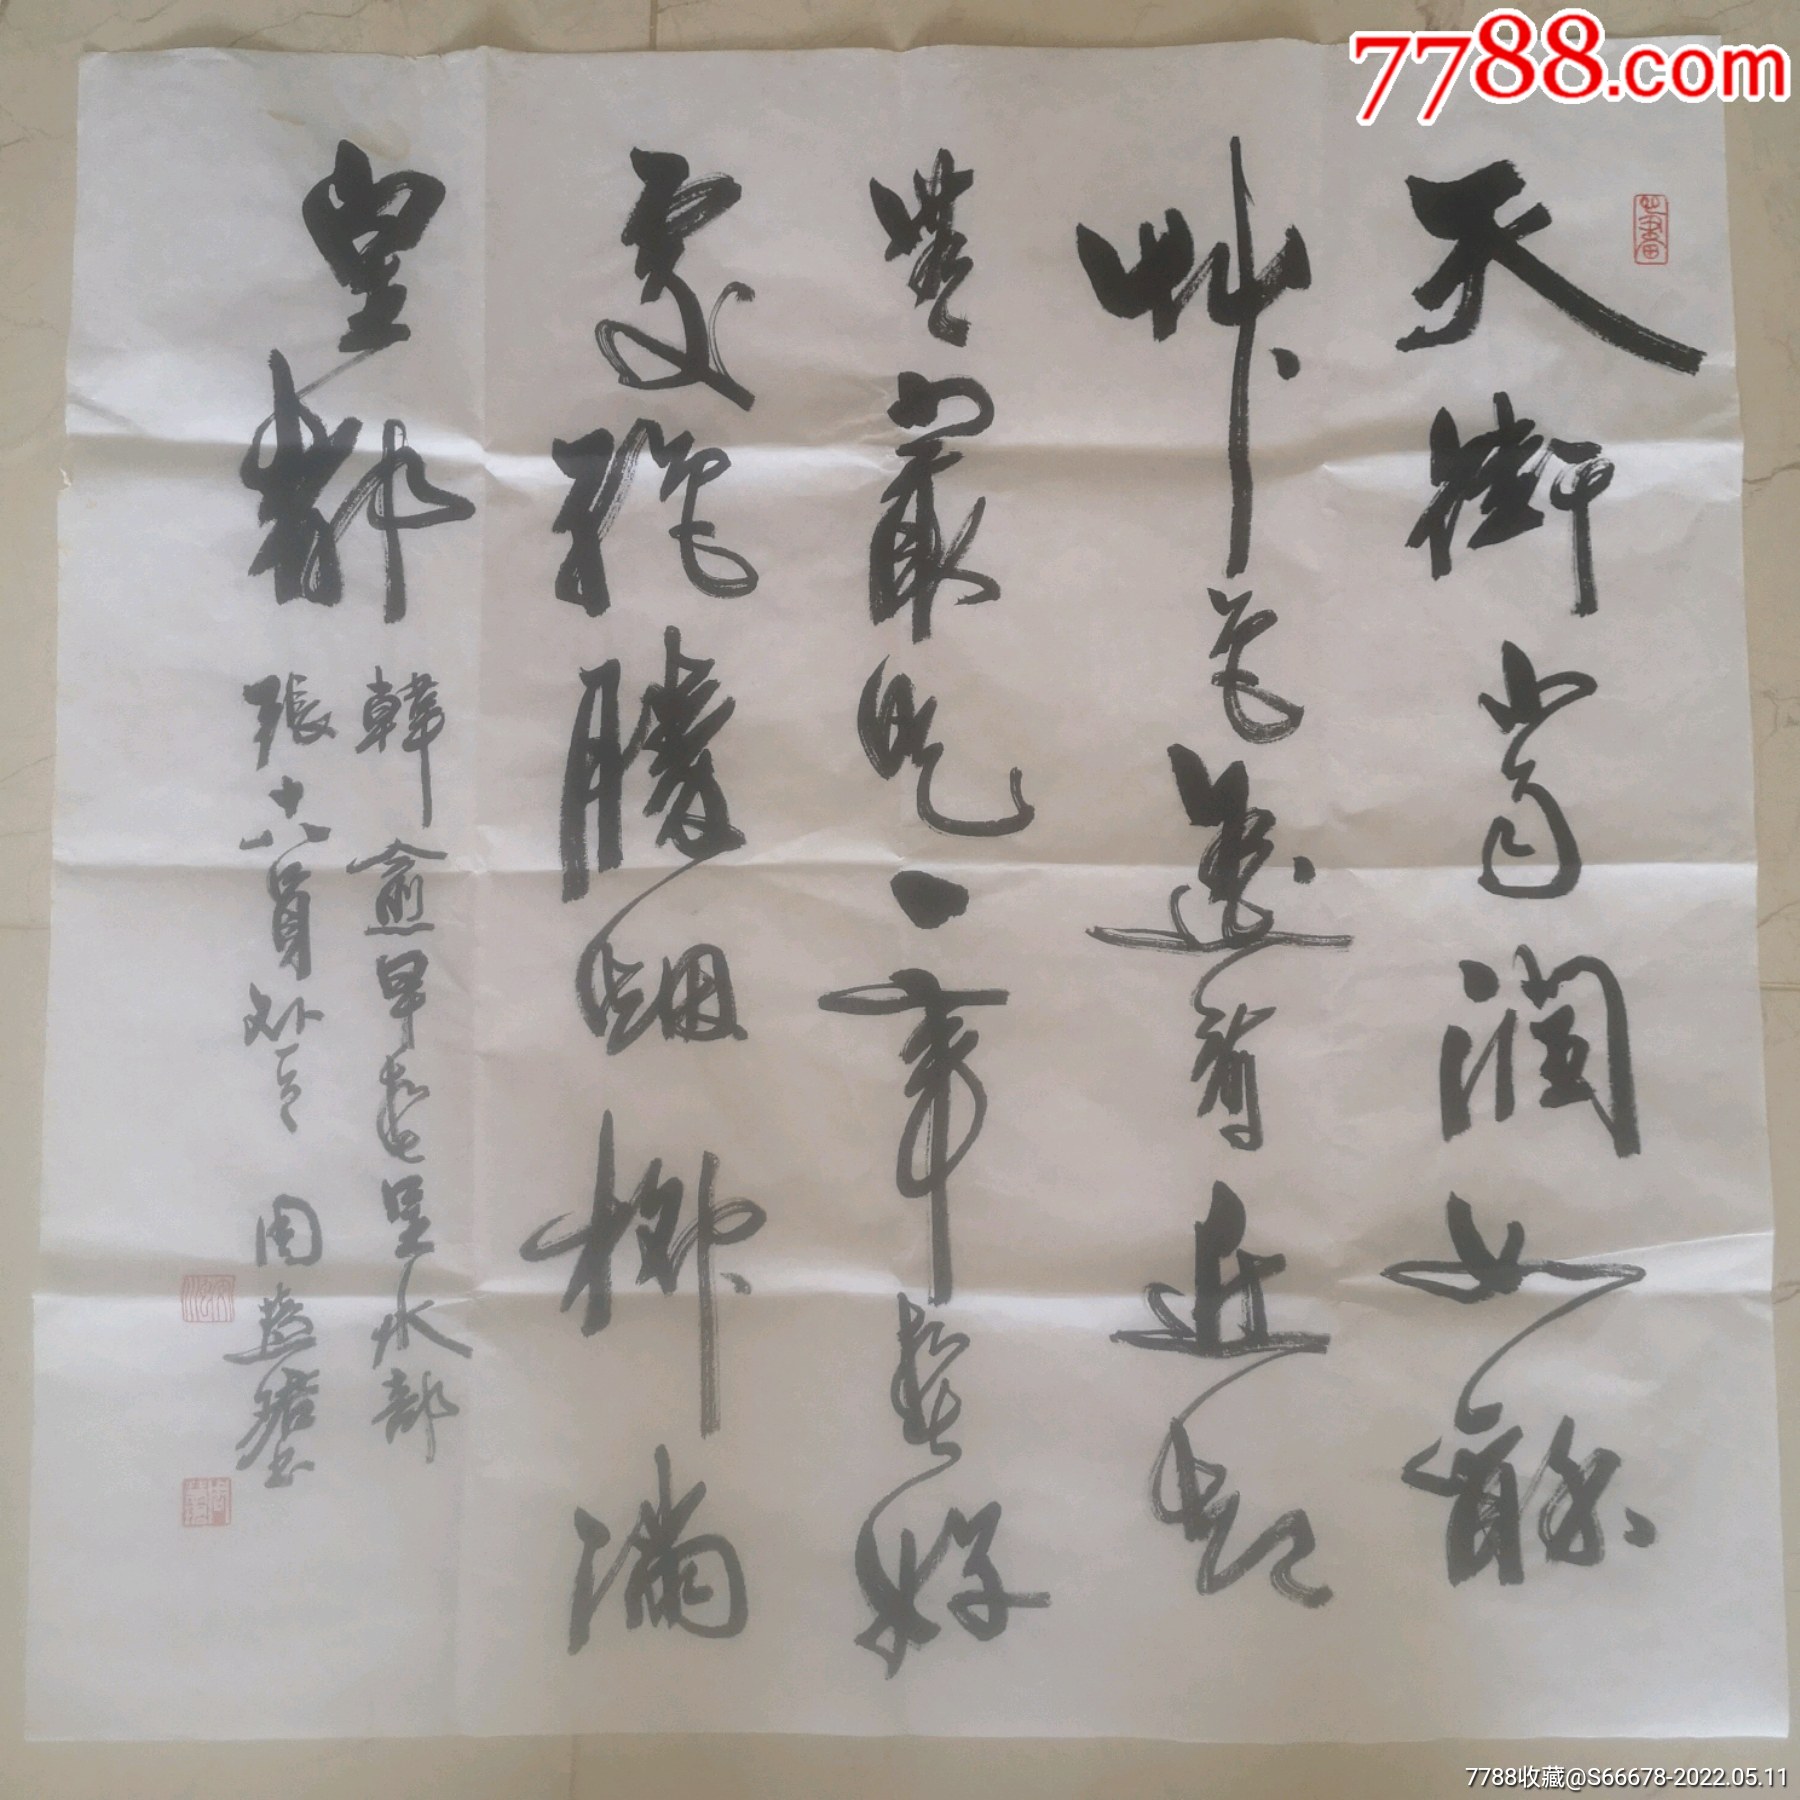 7788.com
天街小雨润如酥
艸色遥看近却
無最是一年春好
處絶勝烟柳满
皇都
韓愈早春呈水部
張十八員外一首
周
7788收藏@S66678-2022.05.11